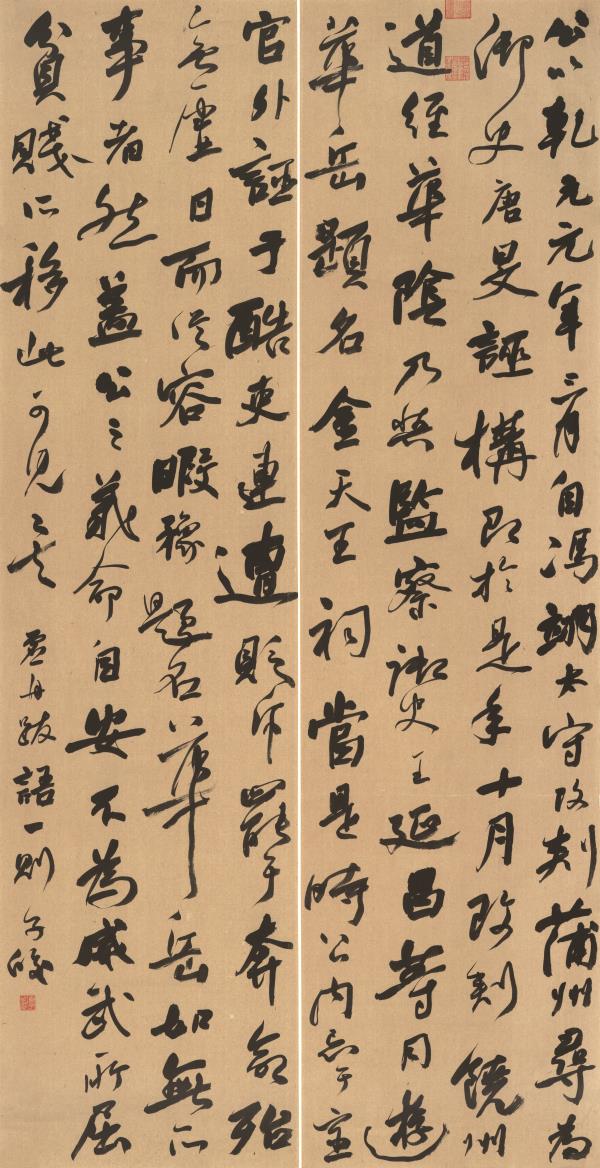 公以乾元元年三月自馮翊太守改刺蒲州尋為
御史唐旻誣構即於是年十月改刺饒州
道經華陰乃與監察御史王延昌等同遊
華岳題名金天王祠當是時公内忌于宰
官外誣于酷吏連遭貶斥罷于奔命殆
無虛日而從容暇豫題名華岳如無所
事者然蓋公之義命自安不為威武所屈
貧賤所移此可見之矣 虛舟跋語一則 子